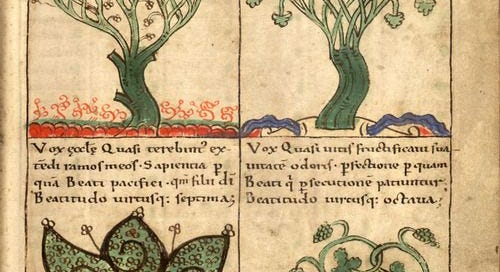 Vox eccłe Quasi terebint' ex
tedi ramos meos. Sapientia ꝑ
quā Beati pacifici. qm̄ filii dī
Beatitudo virtusq: septima;
Vox Quasi uitis fructificaui sua
uitatē odoris. ꝑfectione ꝑ quam
Beati q' ꝑsecutionē patiuntur;
Beatitudo uirtusq: octaua;